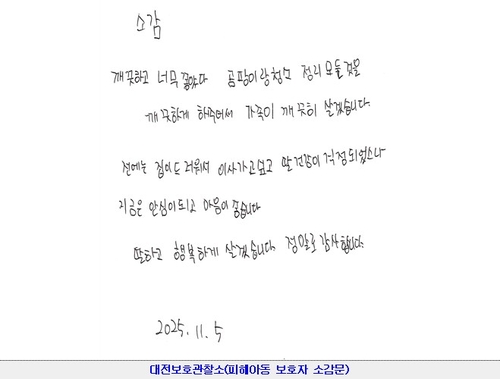 소감
깨끗하고 너무 좋았다 곰팡이랑 청소 정리 모들것을
깨끗하게 해주어서 가족이 깨끗히 살겠습니다
전에는 집이 드러워서 이사가고 싶고 딸 건강이 걱정되었으나
지금은 안심이 되고 마음이 좋습니다
딸하고 행복하게 살겠습니다. 정말로 감사합니다.
2025. 11. 5
대전보호관찰소(피해아동 보호자 소감문)